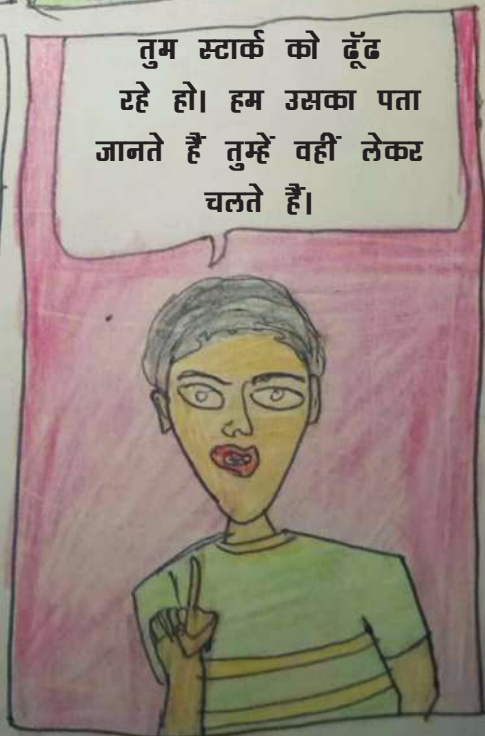 तुम स्टार्क को ढूँढ
रहे हो। हम उसका पता
जानते हैं तुम्हें वहीं लेकर
चलते हैं।